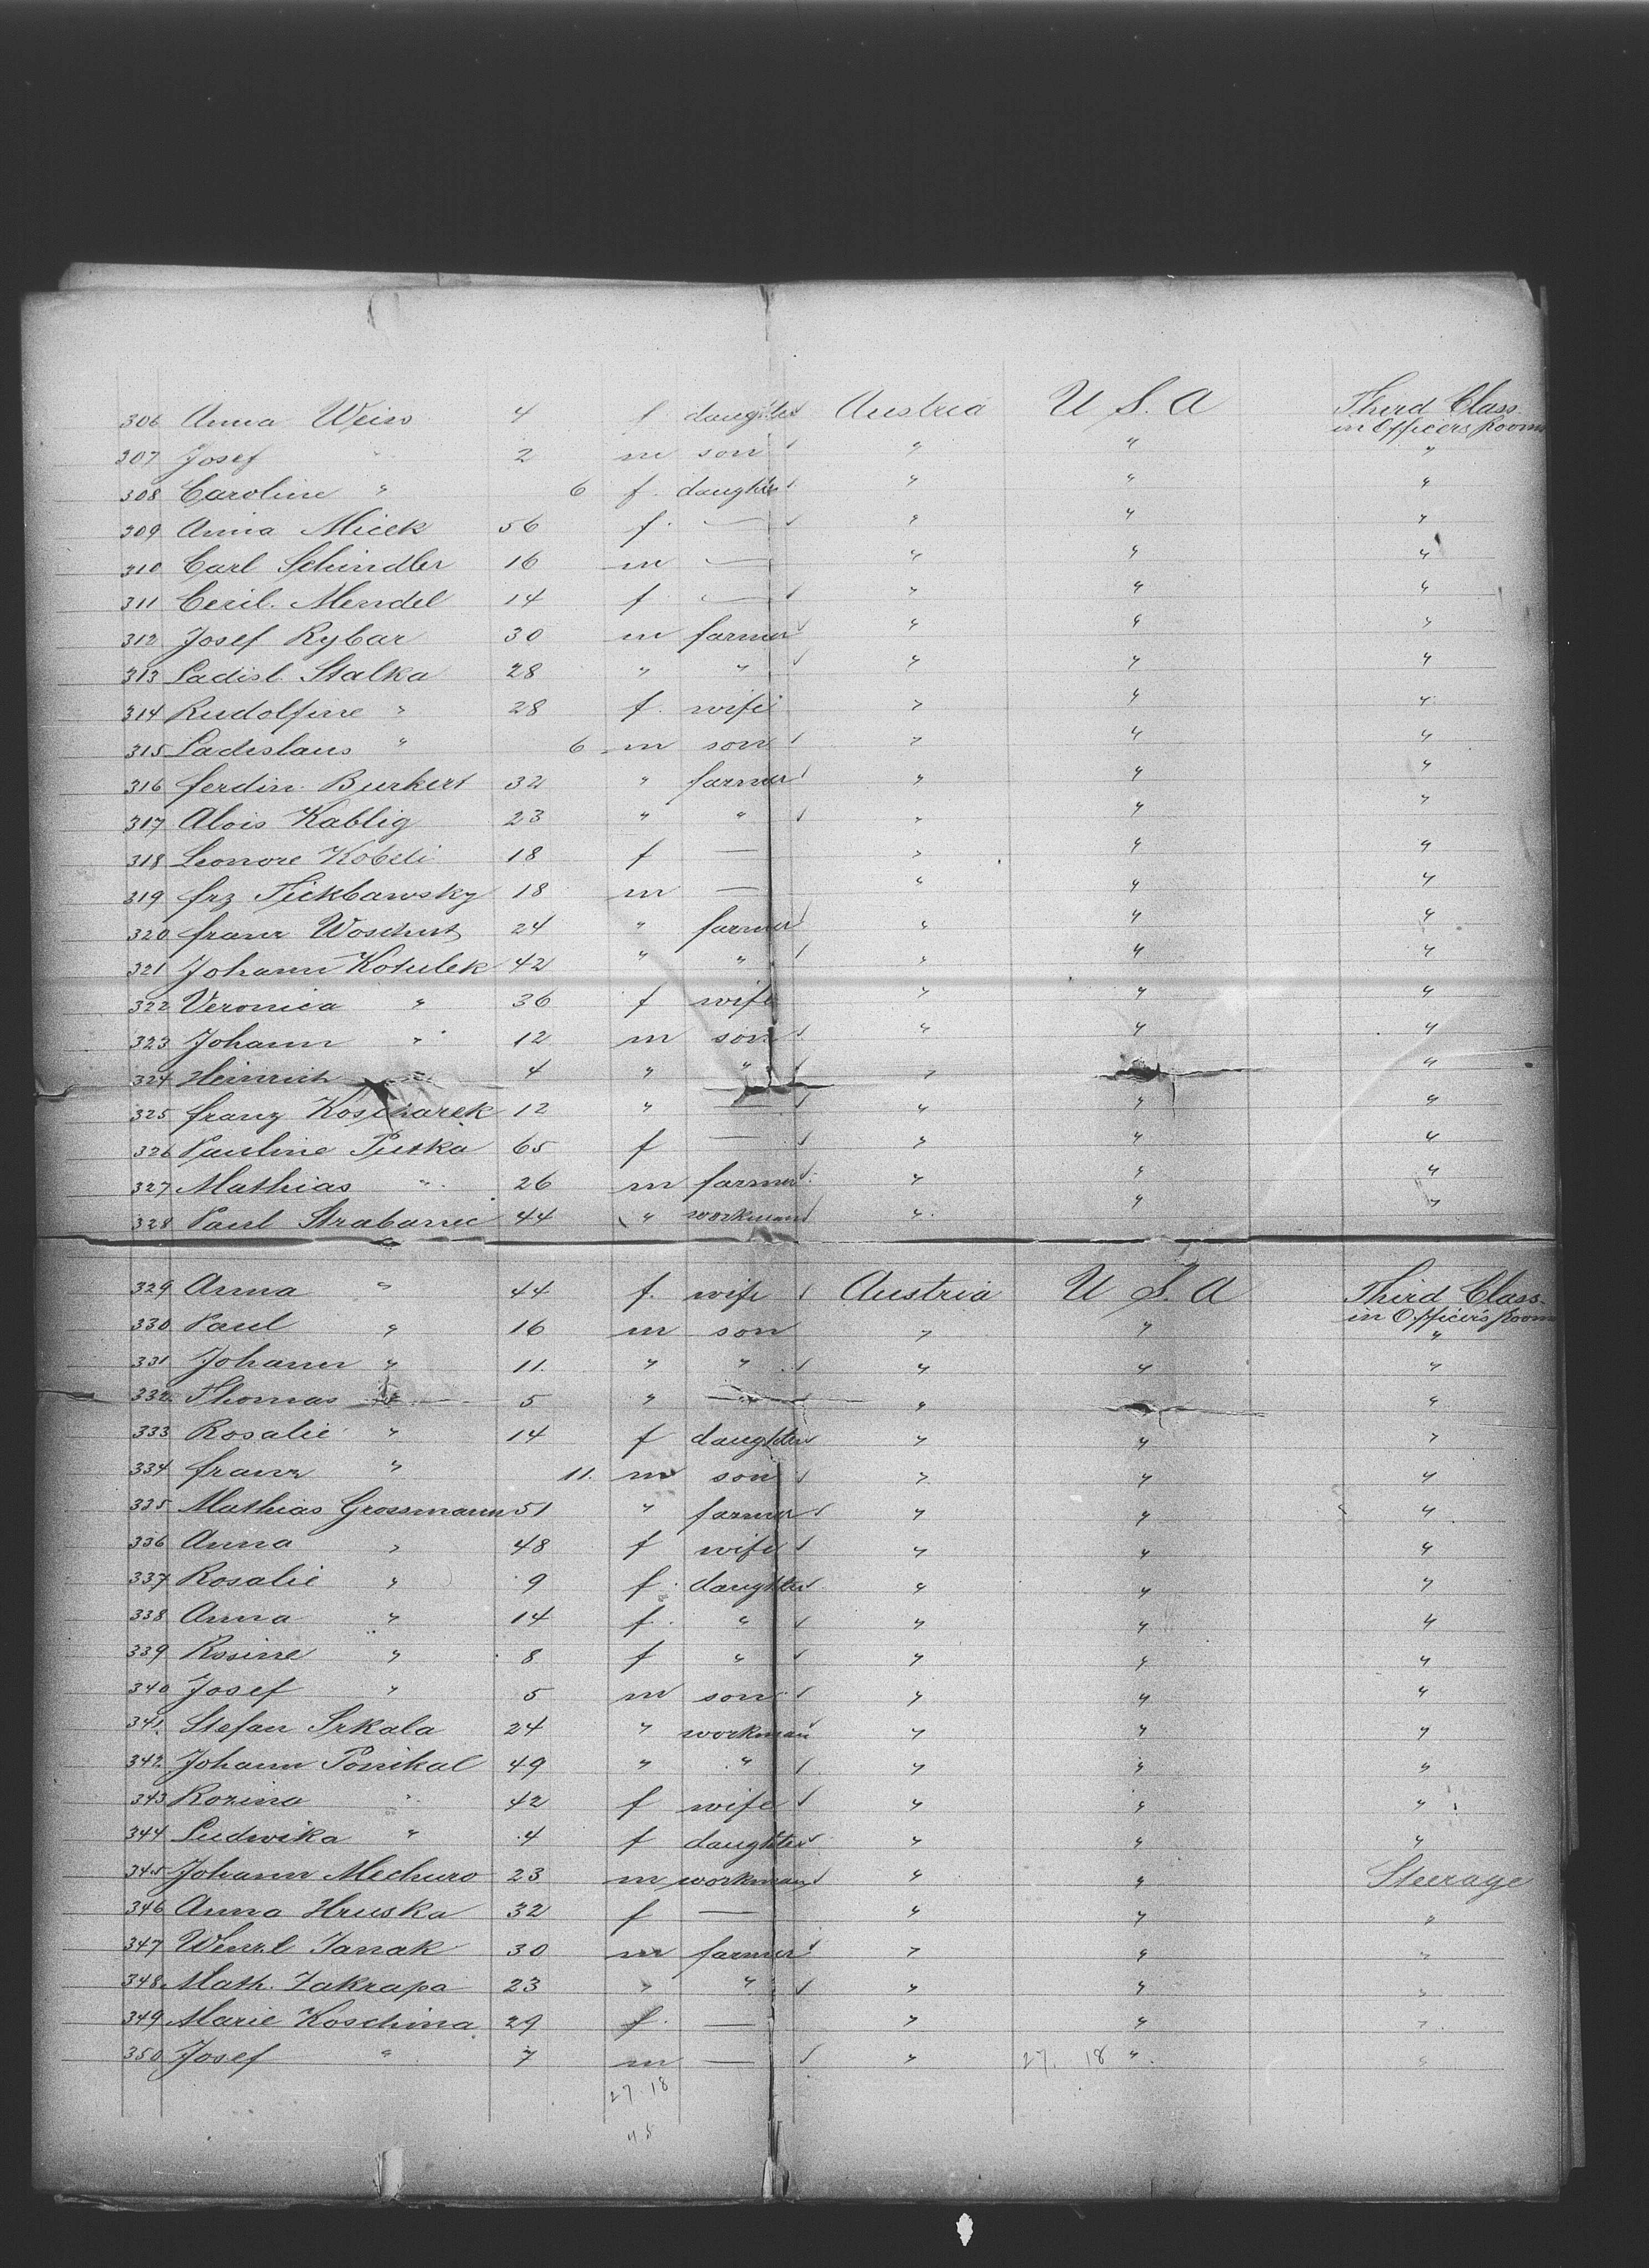 306 Anna Weiss 4 f daughter Austria U S. A Third Class in Officers Rooms
307 Josef " 2 m son " " "
308 Caroline " 6 f. daughter " " "
309 Anna Micek 56 f. — " " "
310 Carl Schindler 16 m — " " "
311 Cecil. Mendel 14 f — " " "
312 Josef Rybar 30 m farmer " " "
313 Ladisl. Stalka 28 " " " " "
314 Rudolfine " 28 f. wife " " "
315 Ladislaus " 6 m son " " "
316 ferdin. Burkert 32 " farmer " " "
317 Alois Kablig 23 " " " " "
318 Leonore 18 f — " " "
319 frz 18 m — " " "
320 franz 24 " farmer " " "
321 Johann Kotulek 42 " " " " "
322 Veronica " 36 f wife " " "
323 Johann " 12 m son " " "
324 Heinrich " 4 " " " "
325 franz Koscharek 12 " — " " "
326 Pauline 65 f — " " "
327 Mathias " 26 m farmer " " "
328 Paul 44 " workman " " "
329 Anna " 44 f. wife Austria U S. A Third Class in Officers Rooms
330 Paul " 16 m son " " "
331 Johann " 11. " " " " "
332 Thomas " 5 " " " "
333 Rosalie " 14 f daughter " " "
334 franz " 11. m son " " "
335 Mathias Grossmann 51 " farmer " " "
336 Anna " 48 f wife " " "
337 Rosalie " 9 f. daughter " " "
338 Anna " 14 f. " " " "
339 Rosine " 8 f " " " "
340 Josef " 5 m son " " "
341. Stefan Srkala 24 " workman " " "
342. Johann Ponikal 49 " " " " "
343 Rozina " 42 f wife " " "
344 Ludwika " 4 f daughter " " "
345 Johann Mechuro 23 m workman " " Steerage
346 Anna Hruska 32 f — " " "
347 Wenzl Janak 30 m farmer " " "
348 Math. Zakrapa 23 " " " " "
349 Marie Koschina 29 f. — " " "
350 Josef " 7 m — " 27. 18 " "
27. 18
45